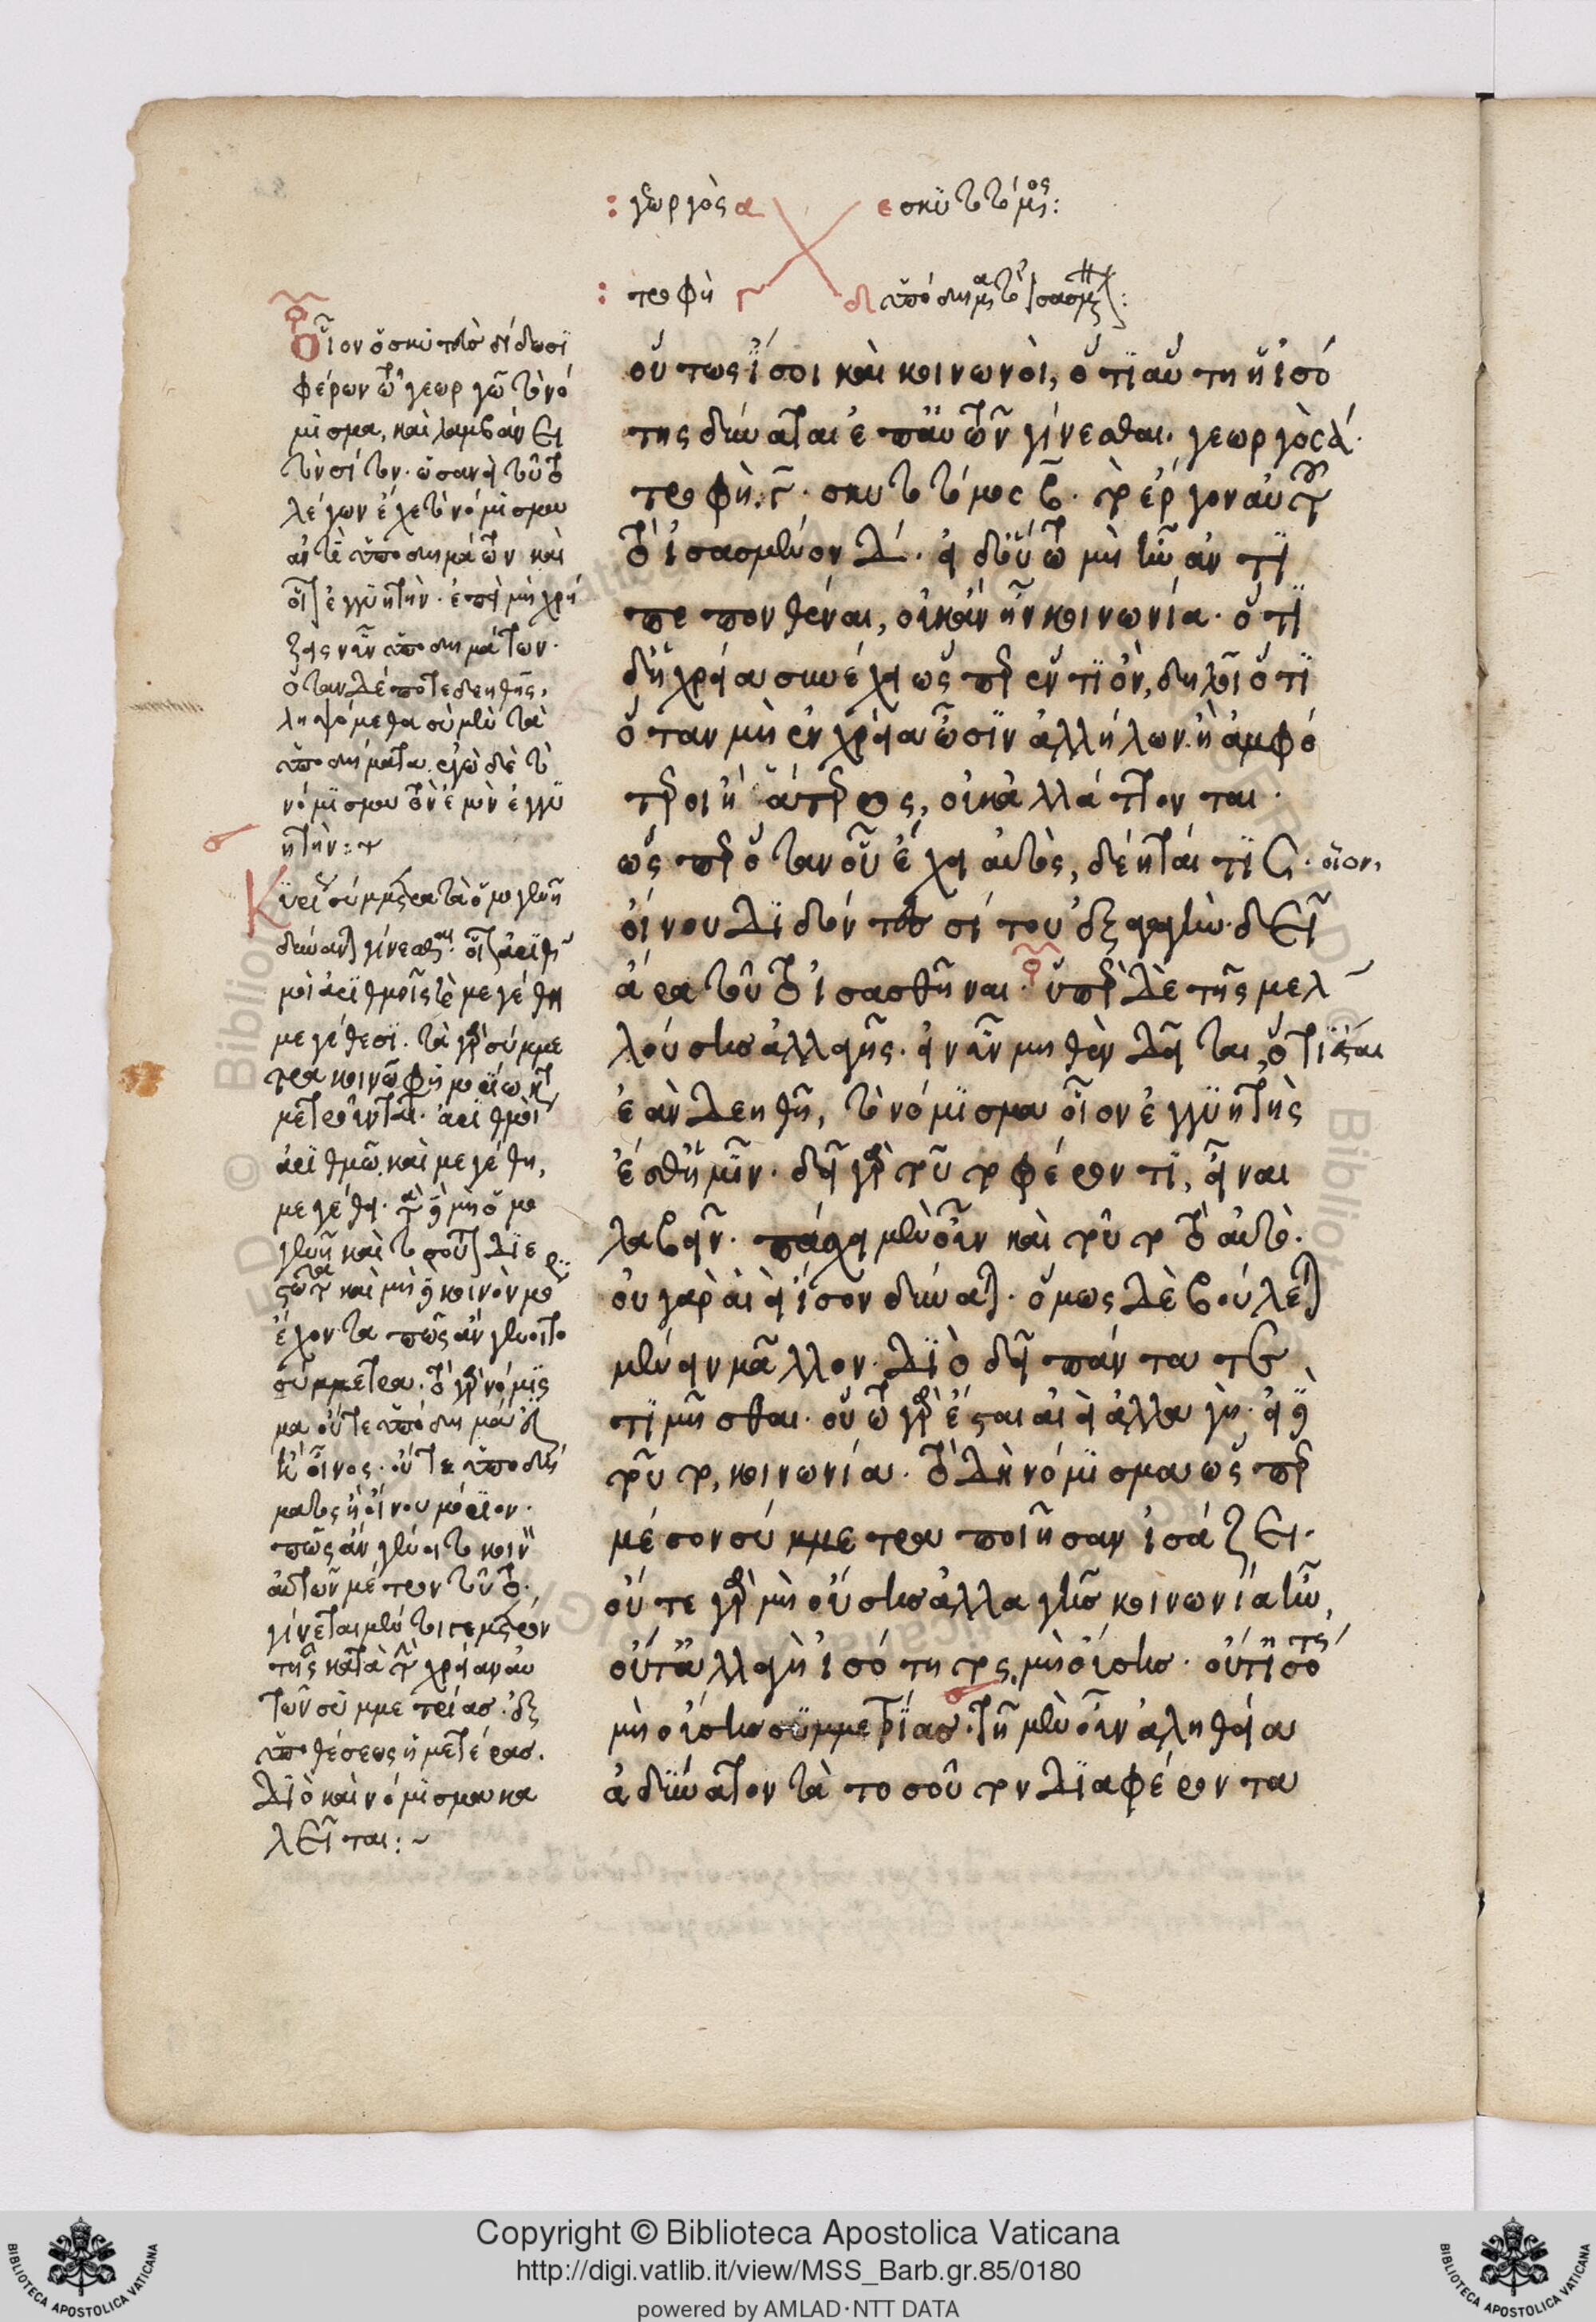 : γεωργὸς α ε σκυτοτόμος:
: τροφὴ γ δ ὑπόδημα τὸ ἰσασμένον:
οὕτως ἴσοι καὶ κοινωνοὶ, ὅτι αὕτη ἡ ἰσό
της δύναται ἐπ' αὐτῶν γίνεσθαι. γεωργὸς ά.
τροφὴ. γ. σκυτοτόμος β. τὸ ἔργον αὐτοῦ
τὸ ἰσασμένον δ. εἰ δ' οὕτω μὴ ἦν ἀντι
πεπονθέναι, οὐκ ἂν ἦν κοινωνία. ὅτι
δ' ἡ χρεία συνέχει ὥσπερ ἕν τι ὂν, δηλοῖ ὅτι
ὅταν μὴ ἐν χρείᾳ ὦσιν ἀλλήλων. ἢ ἀμφό
τεροι ἢ ἅτερος, οὐκ ἀλλάττονται.
ὥσπερ ὅταν οὗ ἔχει αὐτὸς, δέηταί τις. οἷον,
οἴνου διδόντες σίτου ἐξαγωγήν. δεῖ
ἄρα τοῦτο ἰσασθῆναι. ὑπὲρ δὲ τῆς μελ
λούσης ἀλλαγῆς. εἰ νῦν μηθὲν δεῖται, ὅτι ἔσται
ἐὰν δεηθῇ, τὸ νόμισμα οἷον ἐγγυητὴς
ἔσθ' ἡμῖν. δεῖ γὰρ τοῦτο φέροντι, εἶναι
λαβεῖν. πάσχει μὲν οὖν καὶ τοῦτο τὸ αὐτὸ.
οὐ γὰρ ἀεὶ ἴσον δύναται. ὅμως δὲ βούλεται
μένειν μᾶλλον. διὸ δεῖ πάντα τε
τιμῆσθαι. οὕτω γὰρ ἔσται ἀεὶ ἀλλαγὴ. εἰ δὲ
τοῦτο, κοινωνία. τὸ δὴ νόμισμα ὥσπερ
μέσον σύμμετρα ποιῆσαν ἰσάζει.
οὔτε γὰρ μὴ οὔσης ἀλλαγῆς κοινωνία ἦν,
οὔτ' ἀλλαγὴ ἰσότητος μὴ οὔσης. οὔτ' ἰσότης
μὴ οὔσης συμμετρίας. τῇ μὲν οὖν ἀληθείᾳ
ἀδύνατον τὰ τοσοῦτον διαφέροντα
Οἷον ὁ σκυτεὺς δίδωσι
φέρων τῷ γεωργῷ τὸ νό
μισμα, καὶ λαμβάνει
τὸν σῖτον. ὡσανεὶ τοῦτο
λέγων ἔχε τὸ νόμισμα
ἀντὶ ὑποδημάτων καὶ
οἷον ἐγγυητὴν. ἐπεὶ μὴ χρή
ζεις νῦν ὑποδημάτων.
ὅταν δέ ποτε δεηθῇς,
ληψόμεθα σὺ μὲν τὰ
ὑποδήματα. ἐγὼ δὲ τὸ
νόμισμα τὸν ἐμὸν ἐγγυ
ητὴν:
Κυρίως σύμμετρα τὰ ὁμογενῆ
δύναται γίνεσθαι. οἷον ἀριθ
μοὶ ἀριθμοῖς τε μεγέθη
μεγέθεσι. τὰ γὰρ σύμμε
τρα κοινῷ τῷ μορίῳ κατα
μετροῦνται. ἀριθμοὶ
ἀριθμῷ. καὶ μεγέθη,
μεγέθει. τὰ δὲ μὴ ὁμο
γενῆ καὶ τοσοῦτον διε
στῶτα καὶ μὴ δὲ κοινὸν μόριον
ἔχοντα πῶς ἂν γένοιτο
σύμμετρα. τὸ γὰρ νόμισ
μα οὔτε ὑπόδημά ἐστιν
οὔτ' οἶνος. οὔτε ὑποδή
ματος ἢ οἴνου μόριον.
πῶς ἂν γένοιτο κοινὸν
αὐτῶν μέτρον τοῦτο.
γίνεται μέντοι μέτρον
τῆς κατὰ τὴν χρείαν αὐ
τῶν συμμετρίας. ἐξ
ὑποθέσεως ἡμετέρας.
διὸ καὶ νόμισμα κα
λεῖται:~
Copyright © Biblioteca Apostolica Vaticana
http://digi.vatlib.it/view/MSS_Barb.gr.85/0180
powered by AMLAD·NTT DATA
BIBLIOTECA APOSTOLICA VATICANA
BIBLIOTECA APOSTOLICA VATICANA